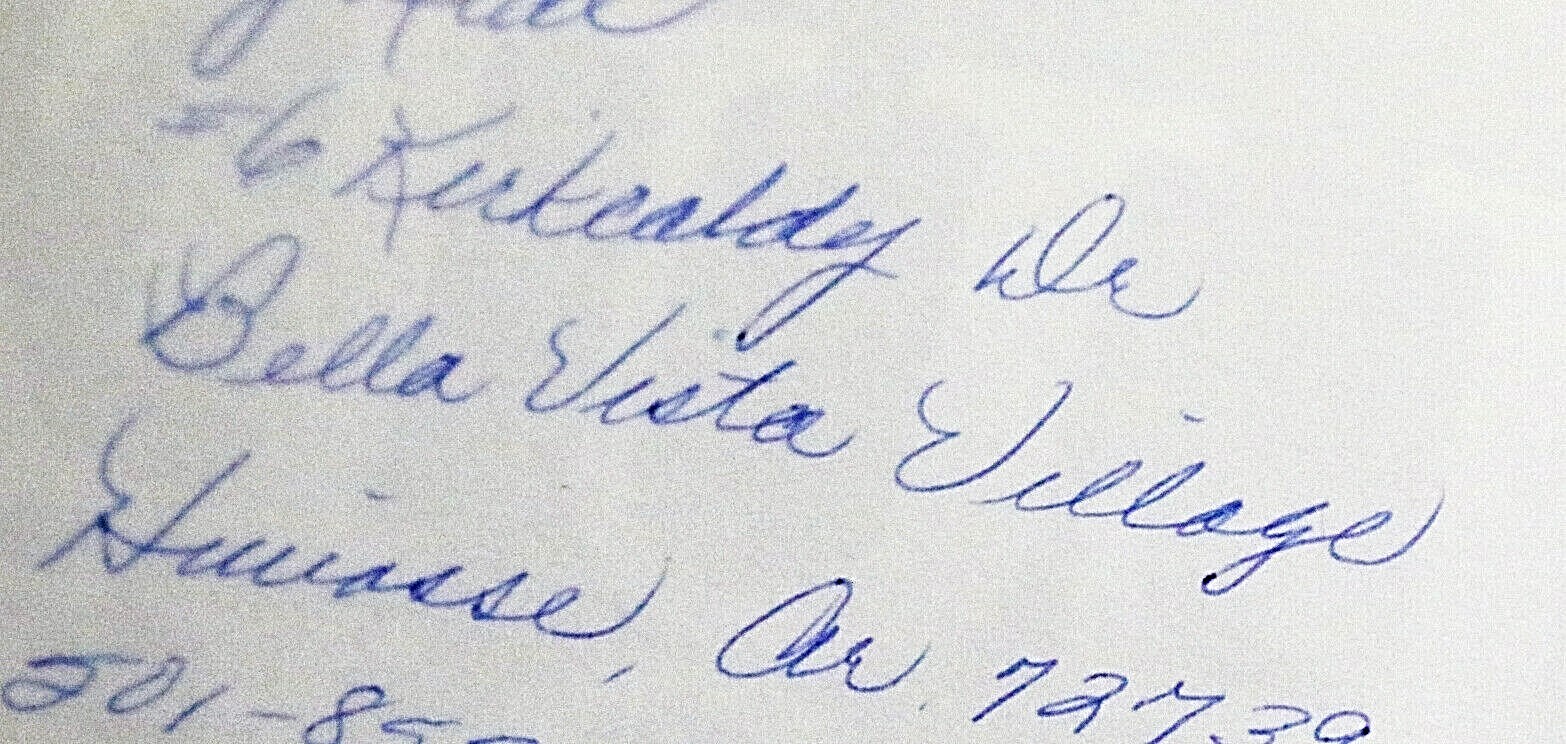 56 Kirkcaldy Dr
Bella Vista Village
Hiwasse, Ar. 72739
501-85